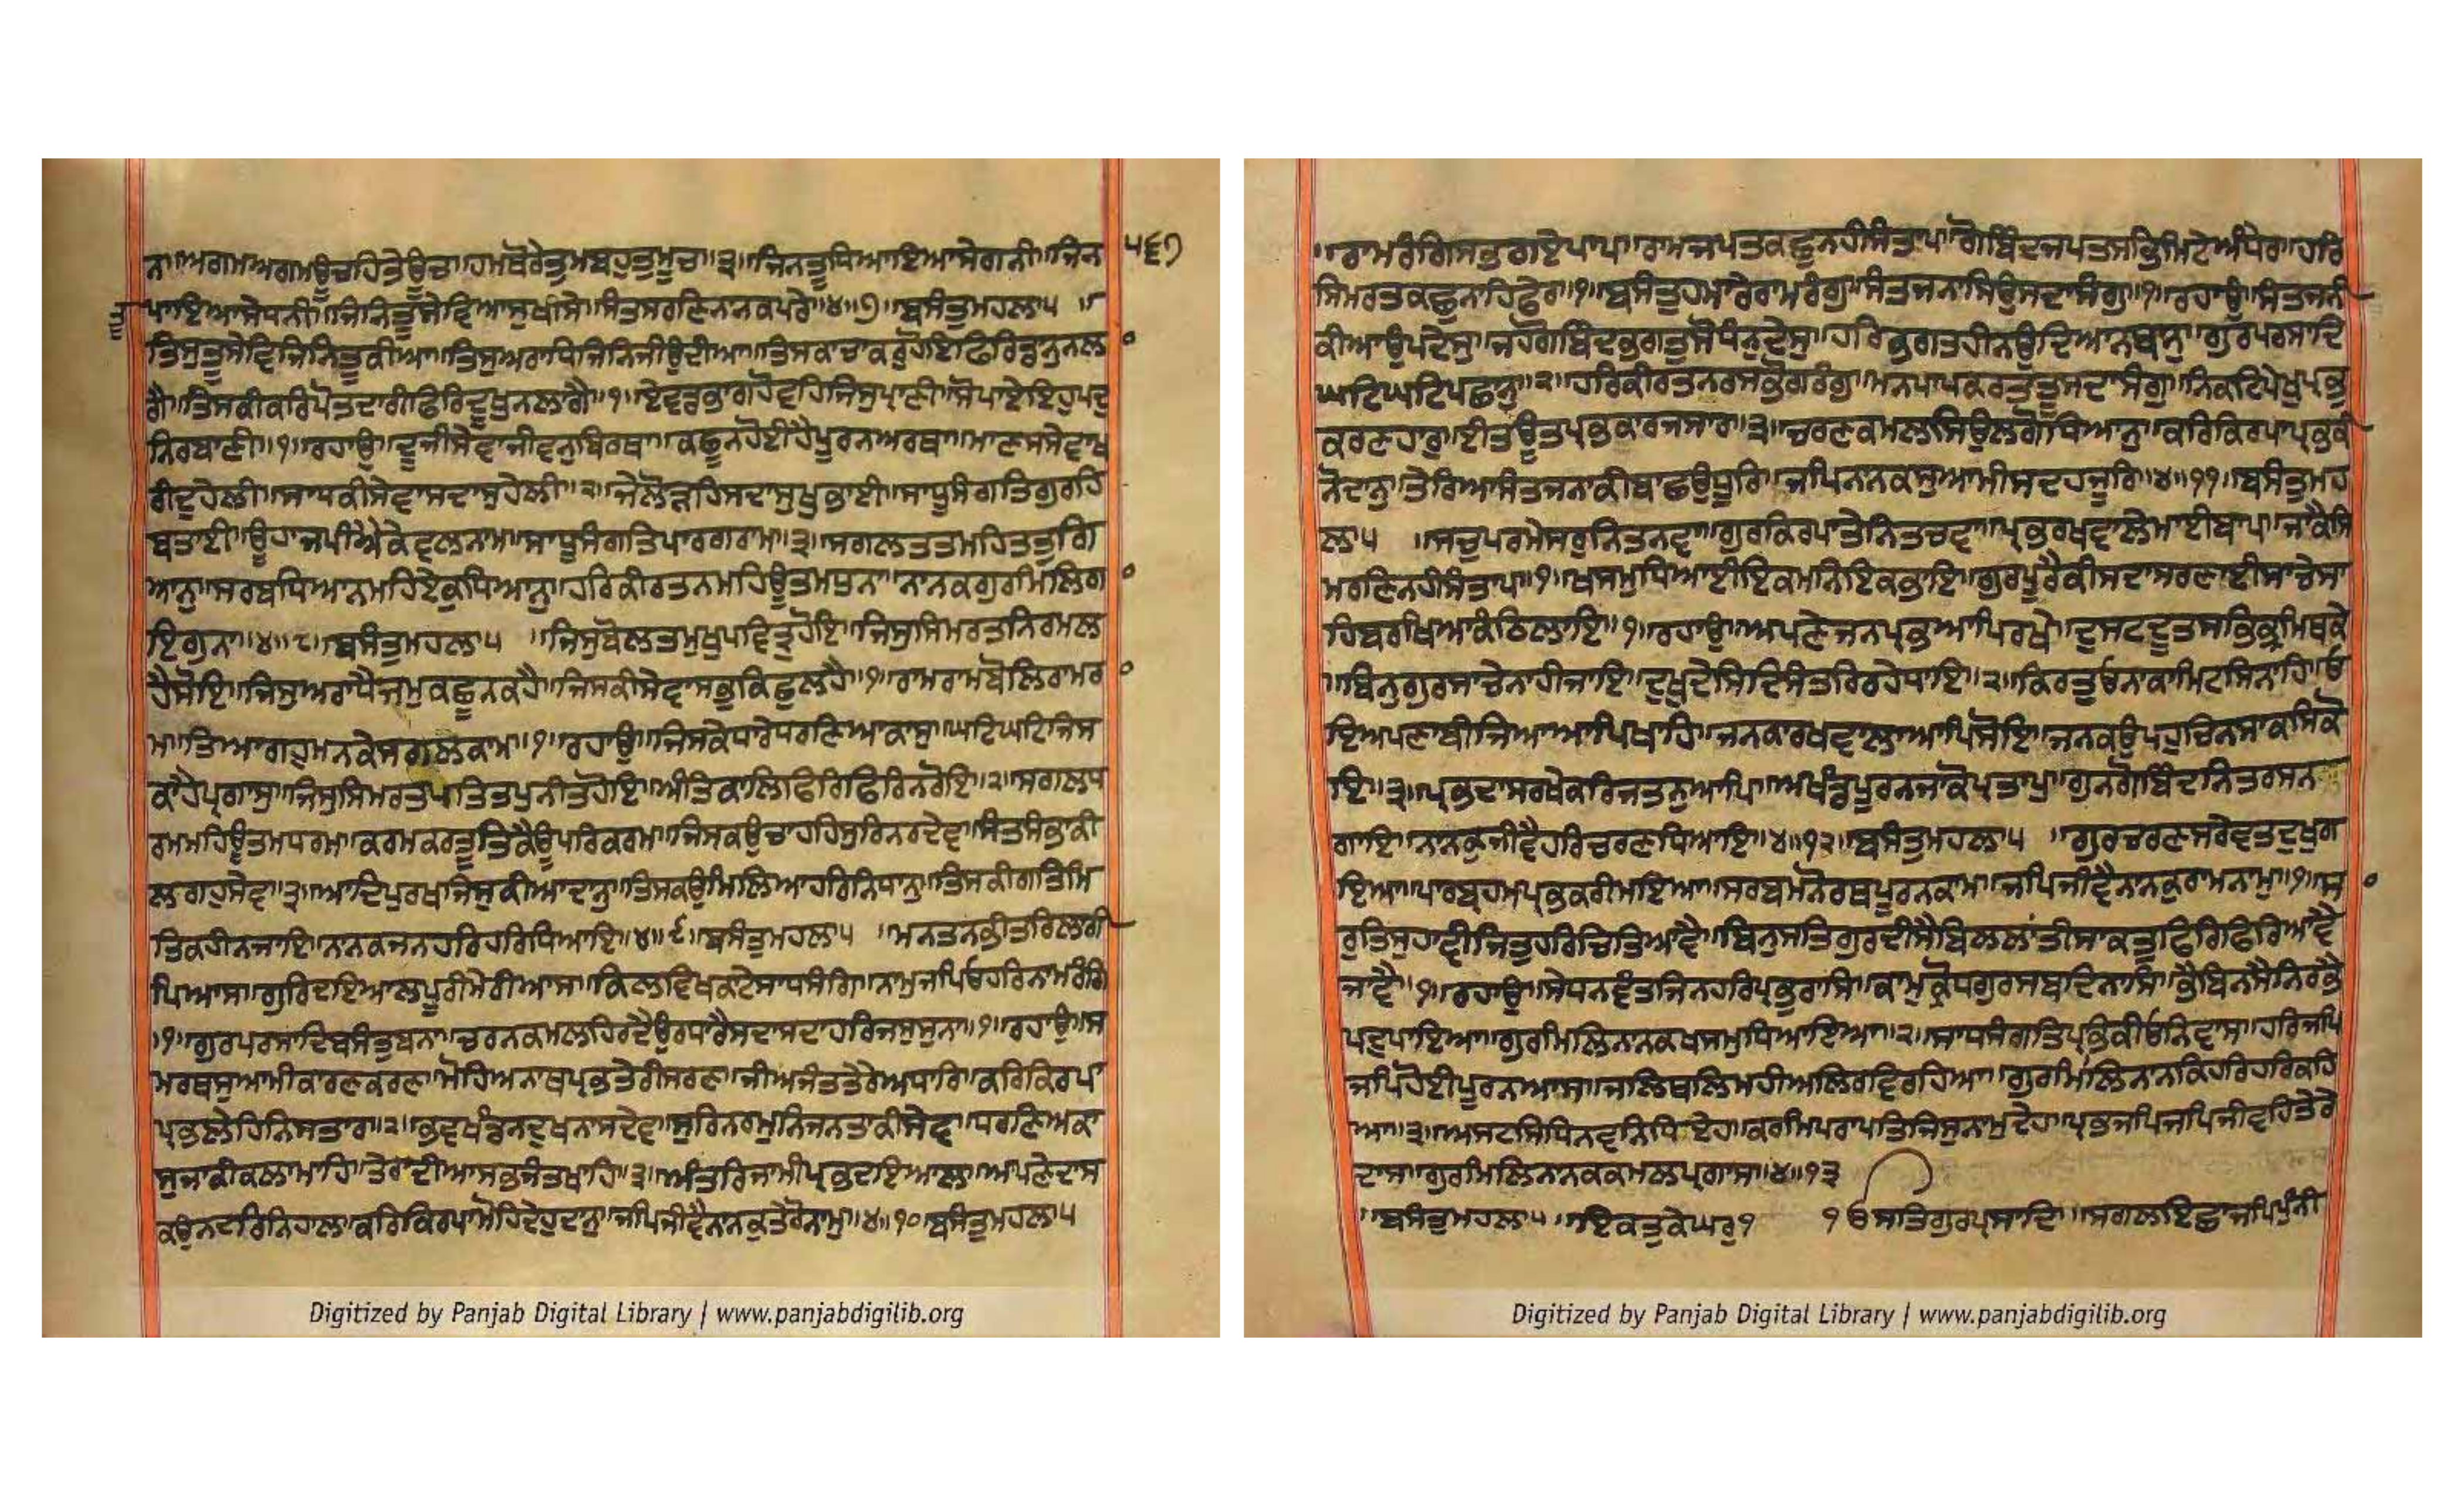 ਨਾ॥ਅਗਮਅਗਮਊਚਹਿਤੇਊਚਾ॥ਹਮਥੋਰੇਤੁਮਬਹੁਤੁਮੂਚਾ॥੩॥ਜਿਨਤੂਧਿਆਇਆਸੇਗਨੀ॥ਜਿਨ
੫੬੭
ਪਾਇਆਸੇਧਨੀ॥ਜਿਨਿਤੂਸੇਵਿਆਸੁਖੀਸੇ॥ਸੰਤਸਰਣਿਨਾਨਕਪਰੇ॥੪॥੭॥ਬਸੰਤੁਮਹਲਾ੫ ॥
ਤਿਸੁਤੂਸੇਵਿਜਿਨਿਤੂਕੀਆ॥ਤਿਸੁਅਰਾਧਿਜਿਨਿਜੀਉਦੀਆ॥ਤਿਸਕਾਚਾਕਰੁਹੋਇਫਿਰਿਡਾਨੁਨਲਾ
ਗੈ॥ਤਿਸਕੀਕਰਿਪੋਤਦਾਰੀਫਿਰਿਦੂਖੁਨਲਾਗੈ॥੧॥ਏਵਡਭਾਗਹੋਵਹਿਜਿਸੁਪ੍ਰਾਣੀ॥ਸੋਪਾਏਇਹੁਪਦੁ
ਨਿਰਬਾਣੀ॥੧॥ਰਹਾਉ॥ਦੂਜੀਸੇਵਾਜੀਵਨੁਬਿਰਥਾ॥ਕਛੂਨਹੋਈਹੈਪੂਰਨਅਰਥਾ॥ਮਾਣਸਸੇਵਾਖ
ਰੀਦੁਹੇਲੀ॥ਸਾਧਕੀਸੇਵਾਸਦਾਸੁਹੇਲੀ॥੨॥ਜੇਲੋੜਹਿਸਦਾਸੁਖੁਭਾਈ॥ਸਾਧੂਸੰਗਤਿਗੁਰਹਿ
ਬਤਾਈ॥ਊਹਾਜਪੀਐਕੇਵਲਨਾਮ॥ਸਾਧੂਸੰਗਤਿਪਾਰਗਰਾਮ॥੩॥ਸਗਲਤਤਮਹਿਤਤੁਗਿ
ਆਨੁ॥ਸਰਬਧਿਆਨਮਹਿਏਕੁਧਿਆਨੁ॥ਹਰਿਕੀਰਤਨਮਹਿਊਤਮਧੁਨਾ॥ਨਾਨਕਗੁਰਮਿਲਿਗਾ
ਇਗੁਨਾ॥੪॥੮॥ਬਸੰਤੁਮਹਲਾ੫ ॥ਜਿਸੁਬੋਲਤਮੁਖੁਪਵਿਤੁਹੋਇ॥ਜਿਸੁਸਿਮਰਤਨਿਰਮਲ
ਹੈਸੋਇ॥ਜਿਸੁਅਰਾਧੈਜਮੁਕਛੂਨਕਹੈ॥ਜਿਸਕੀਸੇਵਾਸਭੁਕਿਛੁਲਹੈ॥੧॥ਰਾਮਰਾਮਬੋਲਿਰਾਮਰਾ
ਮ॥ਤਿਆਗਹੁਮਨਕੇਸਗਲਕਾਮ॥੧॥ਰਹਾਉ॥ਜਿਸਕੇਧਾਰੇਧਰਣਿਆਕਾਸੁ॥ਘਟਿਘਟਿਜਿਸ
ਕਾਹੈਪ੍ਰਗਾਸੁ॥ਜਿਸੁਸਿਮਰਤਪਤਿਤਪੁਨੀਤਹੋਇ॥ਅੰਤਿਕਾਲਿਫਿਰਿਫਿਰਿਨਰੋਇ॥੨॥ਸਗਲਧ
ਰਮਮਹਿਊਤਮਧਰਮ॥ਕਰਮਕਰਤੂਤਿਕੈਊਪਰਿਕਰਮ॥ਜਿਸਕਉਚਾਹਹਿਸੁਰਿਨਰਦੇਵ॥ਸੰਤਸਭਾਕੀ
ਲਗਹੁਸੇਵ॥੩॥ਆਦਿਪੁਰਖਿਜਿਸੁਕੀਆਦਾਨੁ॥ਤਿਸਕਉਮਿਲਿਆਹਰਿਨਿਧਾਨੁ॥ਤਿਸਕੀਗਤਿਮਿ
ਤਿਕਹੀਨਜਾਇ॥ਨਾਨਕਜਨਹਰਿਹਰਿਧਿਆਇ॥੪॥੯॥ਬਸੰਤੁਮਹਲਾ੫ ॥ਮਨਤਨਭੀਤਰਿਲਾਗੀ
ਪਿਆਸ॥ਗੁਰਿਦਇਆਲਪੂਰੀਮੇਰੀਆਸ॥ਕਿਲਵਿਖਕਾਟੇਸਾਧਸੰਗਿ॥ਨਾਮੁਜਪਿਓਹਰਿਨਾਮਰੰਗਿ
॥੧॥ਗੁਰਪਰਸਾਦਿਬਸੰਤੁਬਨਾ॥ਚਰਨਕਮਲਹਿਰਦੈਉਰਧਾਰੈਸਦਾਸਦਾਹਰਿਜਸੁਸੁਨਾ॥੧॥ਰਹਾਉ॥ਸ
ਮਰਥਸੁਆਮੀਕਾਰਣਕਰਣ॥ਮੋਹਿਅਨਾਥਪ੍ਰਭਤੇਰੀਸਰਣ॥ਜੀਅਜੰਤਤੇਰੇਅਧਾਰਿ॥ਕਰਿਕਿਰਪਾ
ਪ੍ਰਭਲੇਹਿਨਿਸਤਾਰ॥੨॥ਭਵਖੰਡਨਦੁਖਨਾਸਦੇਵ॥ਸੁਰਿਨਰਮੁਨਿਜਨਤਾਕੀਸੇਵ॥ਧਰਣਿਅਕਾ
ਸੁਜਾਕੀਕਲਾਮਾਹਿ॥ਤੇਰਾਦੀਆਸਭਜੰਤਖਾਹਿ॥੩॥ਅੰਤਰਿਜਾਮੀਪ੍ਰਭਦਇਆਲ॥ਅਪਣੇਦਾਸ
ਕਉਨਦਰਿਨਿਹਾਲ॥ਕਰਿਕਿਰਪਾਮੋਹਿਦੇਹੁਦਾਨੁ॥ਜਪਿਜੀਵੈਨਾਨਕੁਤੇਰੋਨਾਮੁ॥੪॥੧੦॥ਬਸੰਤੁਮਹਲਾ੫
Digitized by Panjab Digital Library | www.panjabdigilib.org
॥ਰਾਮਰੰਗਿਸਭਗਏਪਾਪ॥ਰਾਮਜਪਤਕਛੁਨਹੀਸੰਤਾਪ॥ਗੋਬਿੰਦਜਪਤਸਭਿਮਿਟੇਅੰਧੇਰ॥ਹਰਿ
ਸਿਮਰਤਕਛੁਨਾਹਿਫੇਰ॥੧॥ਬਸੰਤੁਹਮਾਰੈਰਾਮਰੰਗੁ॥ਸੰਤਜਨਾਸਿਉਸਦਾਸੰਗੁ॥੧॥ਰਹਾਉ॥ਸੰਤਜਨੀ
ਕੀਆਉਪਦੇਸੁ॥ਜਹਗੋਬਿੰਦਭਗਤੁਸੋਧੰਨੁਦੇਸੁ॥ਹਰਿਭਗਤਹੀਨਉਦਿਆਨਥਾਨੁ॥ਗੁਰਪਰਸਾਦਿ
ਘਟਿਘਟਿਪਛਾਨੁ॥੨॥ਹਰਿਕੀਰਤਨਰਸਭੋਗਰੰਗੁ॥ਮਨਪਾਪਕਰਤਤੂਸਦਾਸੰਗੁ॥ਨਿਕਟਿਪੇਖੁਪ੍ਰਭੁ
ਕਰਣਹਾਰੁ॥ਈਤਊਤਪ੍ਰਭਕਾਰਜਸਾਰ॥੩॥ਚਰਣਕਮਲਸਿਉਲਗੋਧਿਆਨੁ॥ਕਰਿਕਿਰਪਾਪ੍ਰਭਕੀ
ਨੋਦਾਨੁ॥ਤੇਰਿਆਸੰਤਜਨਾਕੀਬਾਛਉਧੂਰਿ॥ਜਪਿਨਾਨਕਸੁਆਮੀਸਦਹਜੂਰਿ॥੪॥੧੧॥ਬਸੰਤੁਮਹ
ਲਾ੫ ॥ਸਚੁਪਰਮੇਸਰੁਨਿਤਨਵਾ॥ਗੁਰਕਿਰਪਾਤੇਨਿਤਚਵਾ॥ਪ੍ਰਭਰਖਵਾਲੇਮਾਈਬਾਪ॥ਜਾਕੈਸਿ
ਮਰਣਿਨਹੀਸੰਤਾਪ॥੧॥ਖਸਮੁਧਿਆਈਇਕਮਨਿਇਕਭਾਇ॥ਗੁਰਪੂਰੇਕੀਸਦਾਸਰਣਾਈਸਾਚੇਸਾ
ਹਿਬਰਖਿਆਕੰਠਿਲਾਇ॥੧॥ਰਹਾਉ॥ਅਪਣੇਜਨਪ੍ਰਭਆਪਿਰਖੇ॥ਦੁਸਟਦੂਤਸਭਿਭ੍ਰਮਿਥਕੇ
॥ਬਿਨੁਗੁਰਸਾਚੇਨਾਹੀਜਾਇ॥ਦੁਖੁਦੇਸਿਦਿਸੰਤਰਿਰਹੇਧਾਇ॥੨॥ਕਿਰਤੁਓਨਾਕਾਮਿਟਸਿਨਾਹਿ॥ਓ
ਇਅਪਣਾਬੀਜਿਆਆਪਿਖਾਹਿ॥ਜਨਕਾਰਖਵਾਲਾਆਪਿਸੋਇ॥ਜਨਕਉਪਹੁਚਿਨਸਾਕਸਿਕੋ
ਇ॥੩॥ਪ੍ਰਭਦਾਸਰਖੇਕਰਿਜਤਨੁਆਪਿ॥ਅਖੰਡਪੂਰਨਜਾਕੋਪ੍ਰਤਾਪੁ॥ਗੁਨਗੋਬਿੰਦਨਿਤਰਸਨ
ਗਾਇ॥ਨਾਨਕੁਜੀਵੈਹਰਿਚਰਣਧਿਆਇ॥੪॥੧੨॥ਬਸੰਤੁਮਹਲਾ੫ ॥ਗੁਰਚਰਣਸਰੇਵਤਦੁਖੁਗ
ਇਆ॥ਪਾਰਬ੍ਰਹਮਪ੍ਰਭਕਰੀਮਇਆ॥ਸਰਬਮਨੋਰਥਪੂਰਨਕਾਮ॥ਜਪਿਜੀਵੈਨਾਨਕੁਰਾਮਨਾਮੁ॥੧॥ਸਾ
ਰੁਤਿਸੁਹਾਵੀਜਿਤੁਹਰਿਚਿਤਿਆਵੈ॥ਬਿਨੁਸਤਿਗੁਰਦੀਸੈਬਿਲਲਾਂਤੀਸਾਕਤੁਫਿਰਿਫਿਰਿਆਵੈ
ਜਾਵੈ॥੧॥ਰਹਾਉ॥ਸੇਧਨਵੰਤਜਿਨਹਰਿਪ੍ਰਭੁਰਾਸਿ॥ਕਾਮਕ੍ਰੋਧਗੁਰਸਬਦਿਨਾਸਿ॥ਭੈਬਿਨਸੈਨਿਰਭੈ
ਪਦੁਪਾਇਆ॥ਗੁਰਮਿਲਿਨਾਨਕਖਸਮੁਧਿਆਇਆ॥੨॥ਸਾਧਸੰਗਤਿਪ੍ਰਭਿਕੀਓਨਿਵਾਸ॥ਹਰਿਜਪਿ
ਜਪਿਹੋਈਪੂਰਨਆਸ॥ਜਲਿਥਲਿਮਹੀਅਲਿਰਵਿਰਹਿਆ॥ਗੁਰਮਿਲਿਨਾਨਕਿਹਰਿਹਰਿਕਹਿ
ਆ॥੩॥ਅਸਟਸਿਧਿਨਵਨਿਧਿਏਹ॥ਕਰਮਿਪਰਾਪਤਿਜਿਸੁਨਾਮੁਦੇਹ॥ਪ੍ਰਭਜਪਿਜਪਿਜੀਵਹਿਤੇਰੇ
ਦਾਸ॥ਗੁਰਮਿਲਿਨਾਨਕਕਮਲਪ੍ਰਗਾਸ॥੪॥੧੩
॥ਬਸੰਤੁਮਹਲਾ੫॥ਇਕਤੁਕੇਘਰੁ੧ ੧ਓਸਤਿਗੁਰਪ੍ਰਸਾਦਿ॥ਸਗਲਇਛਾਜਪਿਪੁੰਨੀ
Digitized by Panjab Digital Library | www.panjabdigilib.org